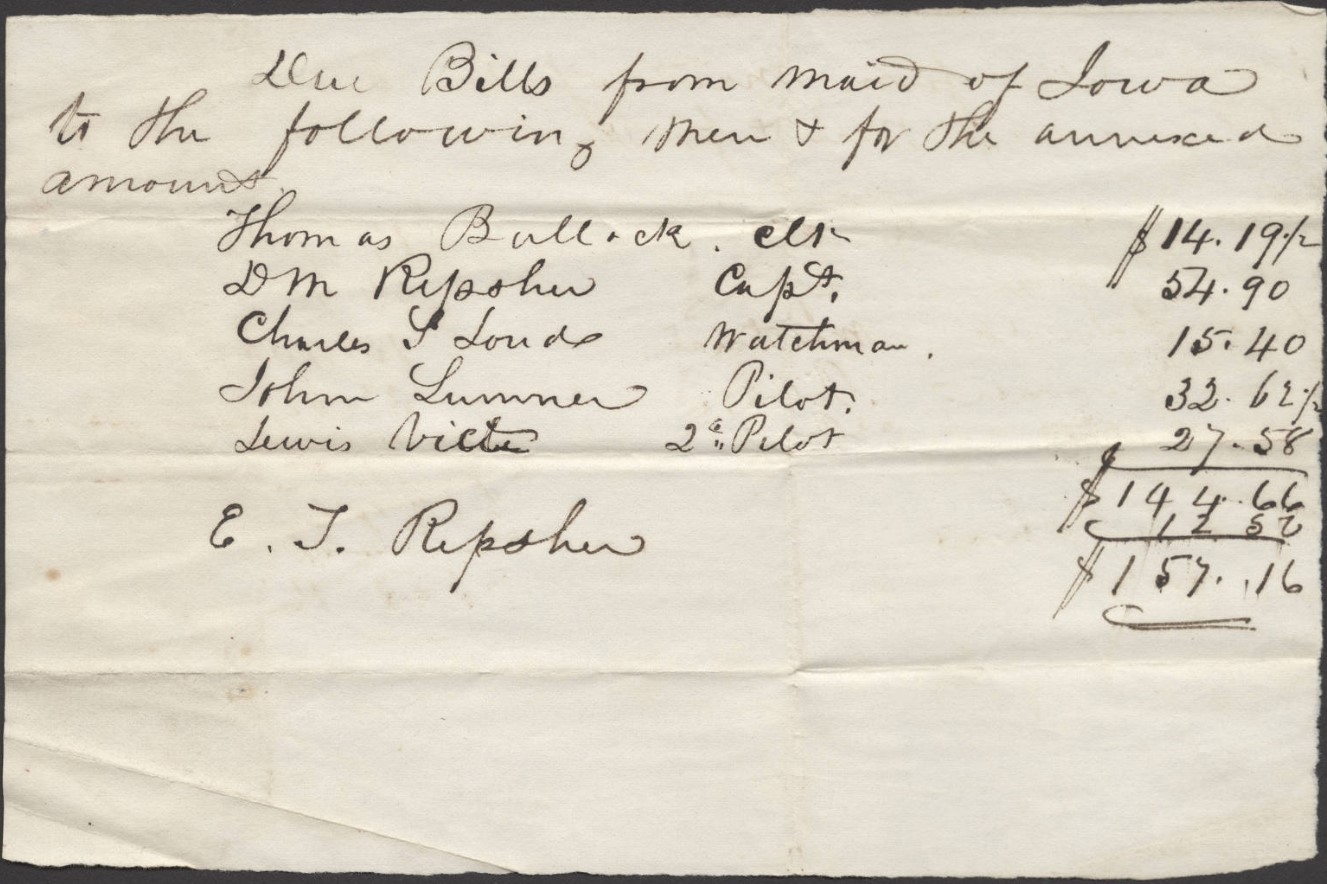 Due Bills from maid of Iowa
to the following men & for the annexed
amount.
Thomas Bullock. clk $14.19½
D M Repsher Capt. 54.90
Charles S Lond Watchman. 15.40
John Sumner Pilot. 32.62½
Lewis 2d Pilot 27.58
$144.66
E. T. Repsher 12 50
$157.16